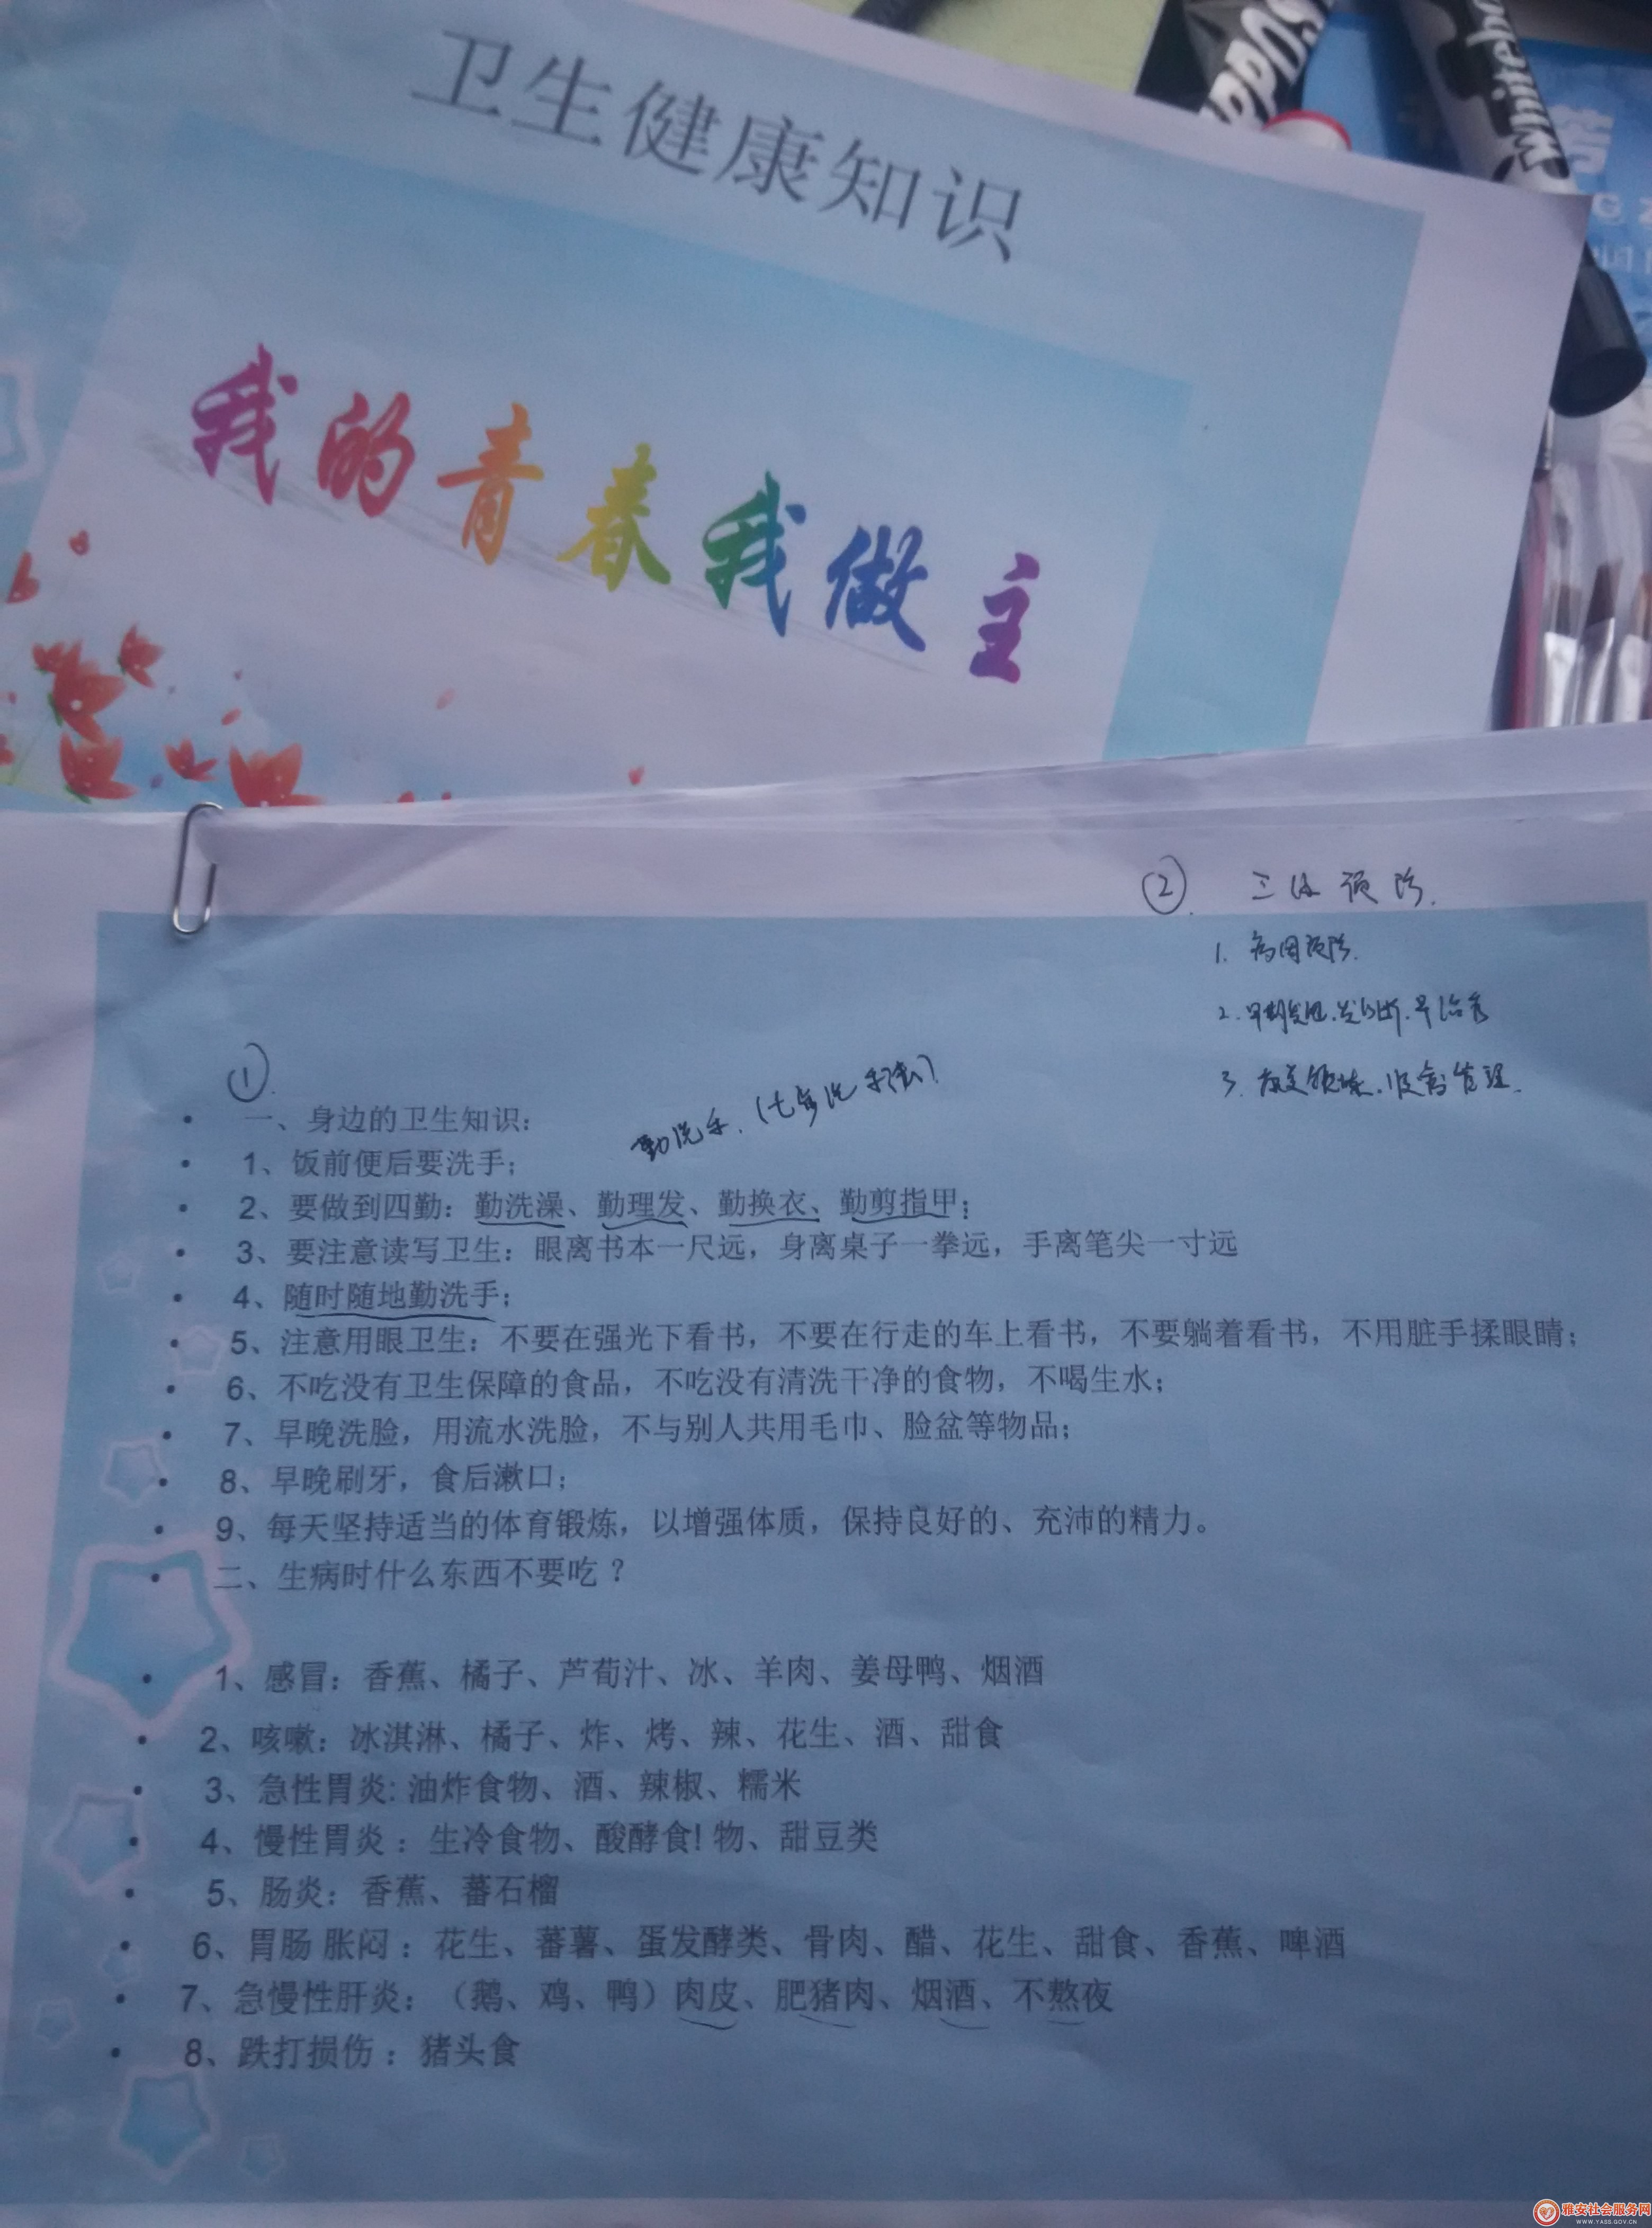 卫生健康知识
我的青春我做主
whitebo
芳
②
三级预防.
1. 病因预防.
2. 早期发现.早诊断.早治疗
3.
①
勤洗手.(七步洗手法)
• 一、身边的卫生知识：
• 1、饭前便后要洗手；
• 2、要做到四勤：勤洗澡、勤理发、勤换衣、勤剪指甲；
• 3、要注意读写卫生：眼离书本一尺远，身离桌子一拳远，手离笔尖一寸远
• 4、随时随地勤洗手；
• 5、注意用眼卫生：不要在强光下看书，不要在行走的车上看书，不要躺着看书，不用脏手揉眼睛；
• 6、不吃没有卫生保障的食品，不吃没有清洗干净的食物，不喝生水；
• 7、早晚洗脸，用流水洗脸，不与别人共用毛巾、脸盆等物品；
• 8、早晚刷牙，食后漱口；
• 9、每天坚持适当的体育锻炼，以增强体质，保持良好的、充沛的精力。
• 二、生病时什么东西不要吃？
• 1、感冒：香蕉、橘子、芦荀汁、冰、羊肉、姜母鸭、烟酒
• 2、咳嗽：冰淇淋、橘子、炸、烤、辣、花生、酒、甜食
• 3、急性胃炎: 油炸食物、酒、辣椒、糯米
• 4、慢性胃炎：生冷食物、酸酵食! 物、甜豆类
• 5、肠炎：香蕉、蕃石榴
• 6、胃肠 胀闷：花生、蕃薯、蛋发酵类、骨肉、醋、花生、甜食、香蕉、啤酒
• 7、急慢性肝炎：（鹅、鸡、鸭）肉皮、肥猪肉、烟酒、不熬夜
• 8、跌打损伤：猪头食
雅安社会服务网
WWW.YASS.GOV.CN